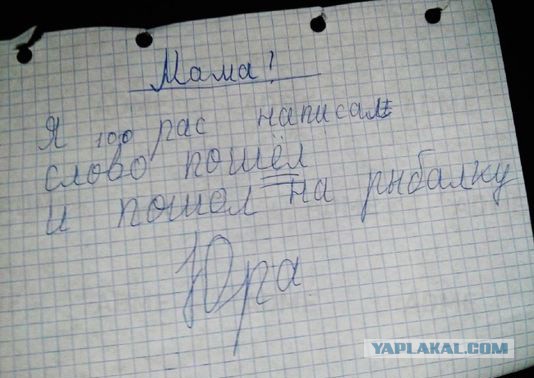 Мама!
Я 100 рас написал
слово пошёл
и пошол на рыбалку
Юра
YAPLAKAL.COM